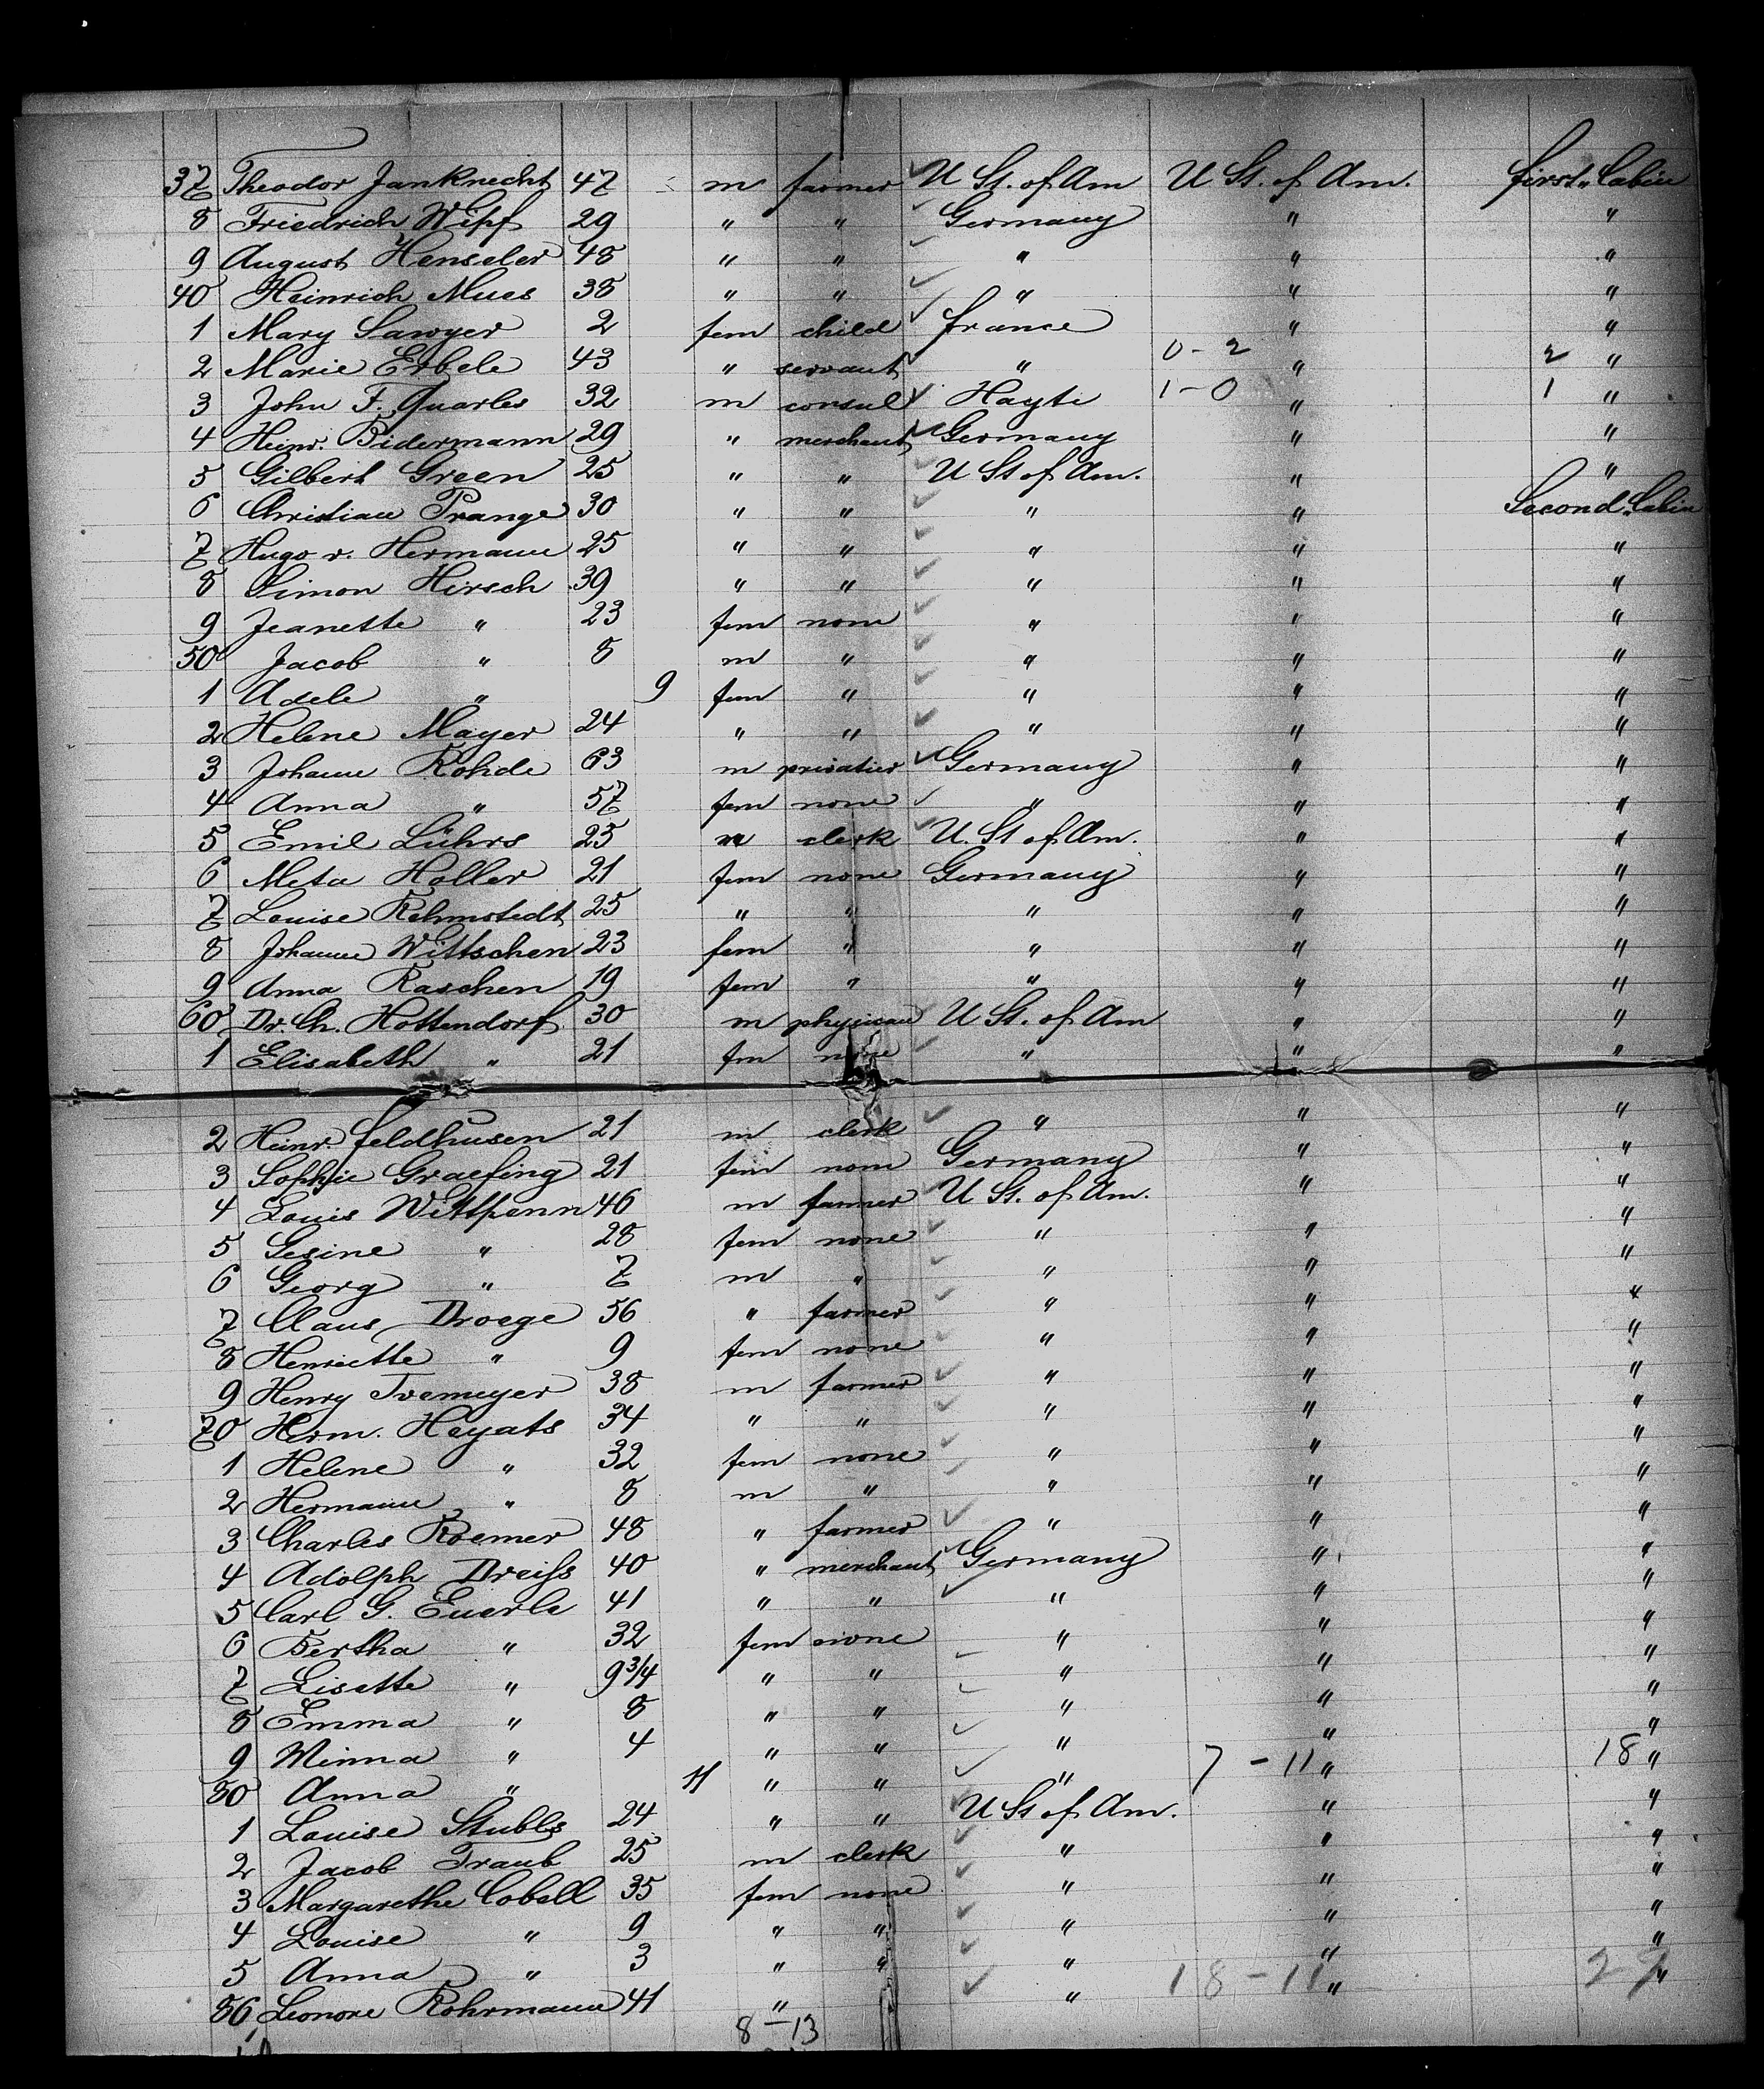 37 Theodor Janknecht 47 m farmer U St. of Am U St. of Am. first Cabin
8 Friedrich Wipf 29 " " Germany " "
9 August Henseler 48 " " " " "
40 Heinrich Mues 38 " " " " "
1 Mary Sawyer 2 fem child france " "
2 Marie Erbele 43 " servant " 0-2 " 2 "
3 John F. Quarles 32 m consul Hayti 1-0 " 1 "
4 Heinr. Bidermann 29 " merchant Germany " "
5 Gilbert Green 25 " " U St of Am. " "
6 Christian Prange 30 " " " " Second Cabin
7 Hugo v. Hermann 25 " " " " "
8 Simon Hirsch 39 " " " " "
9 Jeanette " 23 fem none " " "
50 Jacob " 8 m " " " "
1 Adele " 9 fem " " " "
2 Helene Mayer 24 " " " " "
3 Johann Rohde 63 m privatier Germany " "
4 Anna " 57 fem none " " "
5 Emil Lührs 25 m clerk U. St of Am. " "
6 Meta Holler 21 fem none Germany " "
7 Louise Rehmstedt 25 " " " " "
8 Johanne Wittschen 23 fem " " " "
9 Anna Raschen 19 fem " " " "
60 Dr. Ch. Hottendorf 30 m physician U St. of Am " "
1 Elisabeth " 21 fm none " " "
2 Heinr. feldhusen 21 m clerk " " "
3 Sophie Graefing 21 fem none Germany " "
4 Louis Wittpenn 46 m farmer U St. of Am. " "
5 Gesine " 28 fem none " " "
6 Georg " 7 m " " " "
7 Claus Droege 56 " farmer " " "
8 Henriette " 9 fem none " " "
9 Henry Tvemeyer 38 m farmer " " "
70 Herm. Heyats 34 " " " " "
1 Helene " 32 fem none " " "
2 Hermann " 8 m " " " "
3 Charles Roemer 48 " farmer " " "
4 Adolph Dreiss 40 " merchant Germany " "
5 Carl G. Euerle 41 " " " " "
6 Bertha " 32 fem none " " "
7 Lisette " 9 3/4 " " " " "
8 Emma " 8 " " " " "
9 Minna " 4 " " " " "
80 Anna " 11 " " " 7-11 " 18 "
1 Louise Stubbs 24 " " U St of Am. " "
2 Jacob Traub 25 m clerk " " "
3 Margarethe Cobell 35 fem none " " "
4 Louise " 9 " " " " "
5 Anna " 3 " " " " "
86 Leonore Rohrmann 41 " " 18-11 " "
8-13